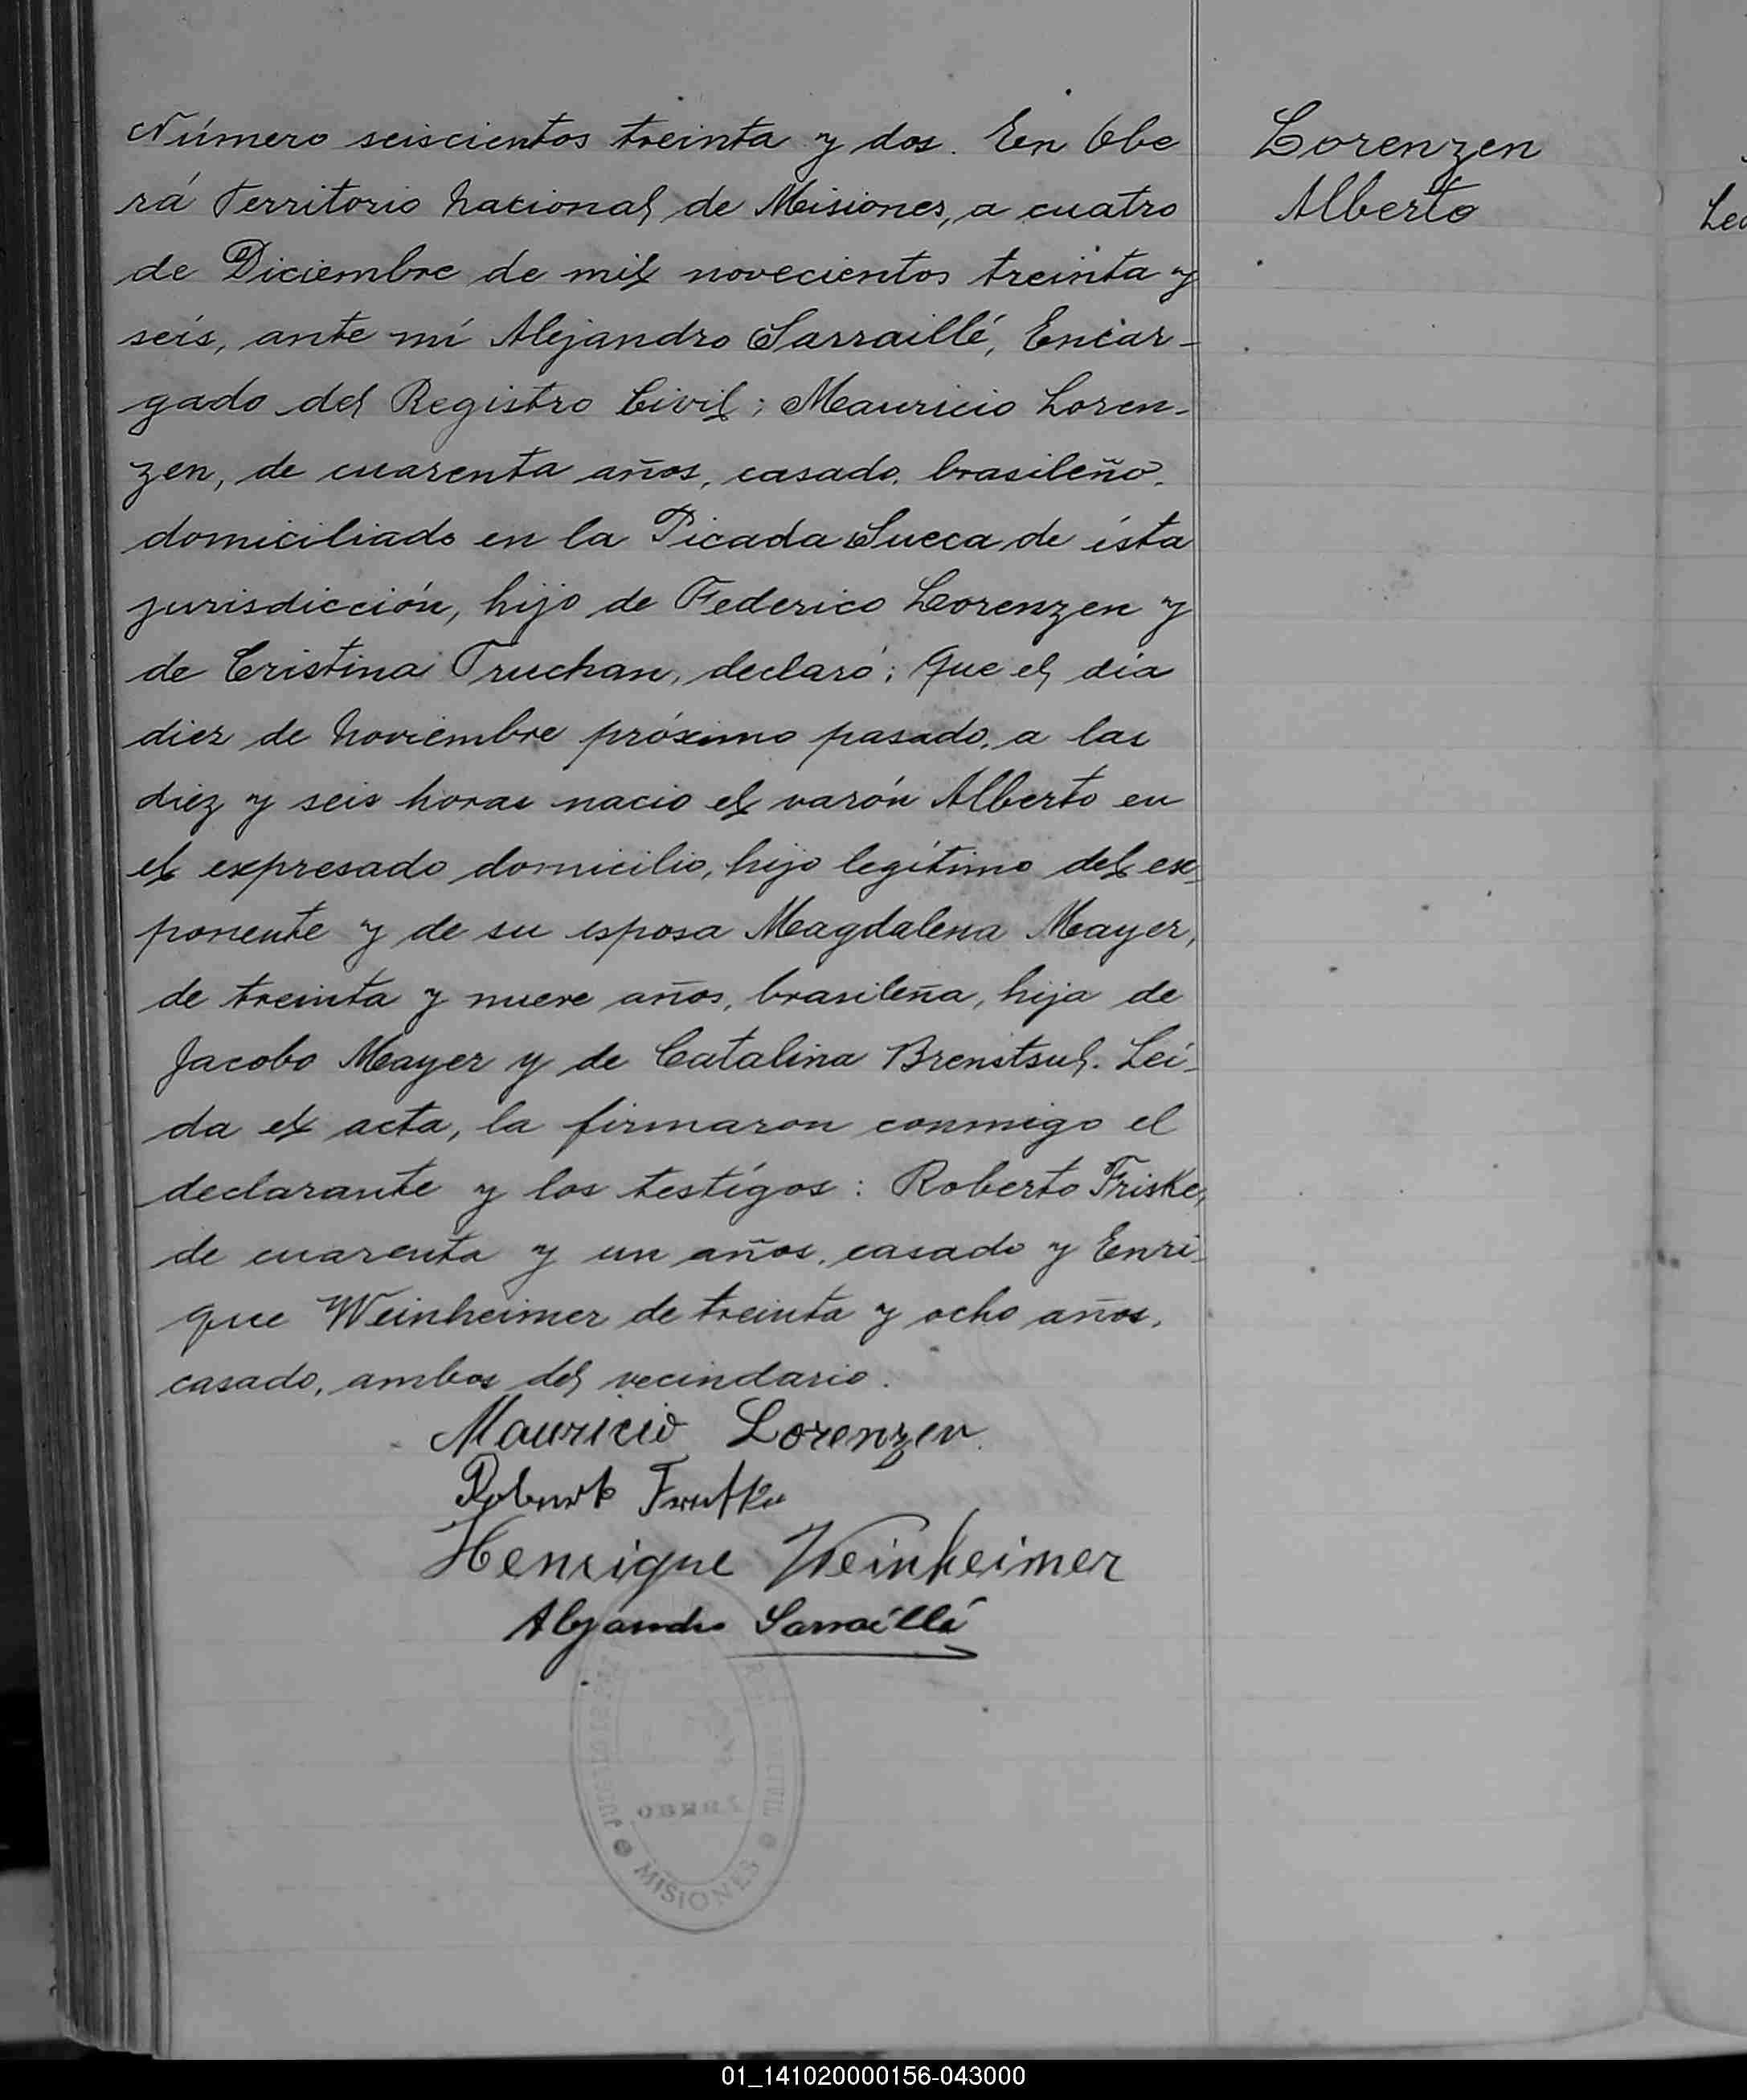 Número seiscientos treinta y dos. En Obe
rá Territorio Nacional de Misiones, a cuatro
de Diciembre de mil novecientos treinta y
seis, ante mí Alejandro Sarraillé, Encar-
gado del Registro Civil; Mauricio Loren-
zen, de cuarenta años, casado, brasileño,
domiciliado en la Picada Sueca de ésta
jurisdicción, hijo de Federico Lorenzen y
de Cristina Truchan, declaró: Que el día
diez de Noviembre próximo pasado, a las
diez y seis horas nacio el varón Alberto en
el expresado domicilio, hijo legítimo del ex-
ponente y de su esposa Magdalena Mayer,
de treinta y nueve años, brasileña, hija de
Jacobo Mayer y de Catalina Brenstsul. Leí-
da el acta, la firmaron conmigo el
declarante y los testígos: Roberto Friske,
de cuarenta y un años, casado y Enri-
que Weinheimer de treinta y ocho años,
casado, ambos del vecindario.
Mauricio Lorenzen
Henrique Weinheimer
Alejandro Sarraillé
MISIONES
Lorenzen
Alberto
01_141020000156-043000